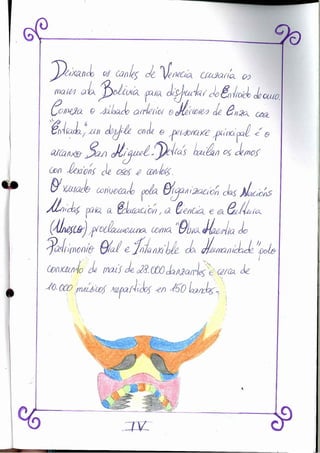 Deixando os canles de Venecia cruzaría os
mares ata Bolivia para disfrutar do Entroido de Ouro
Comeza o sábado anterior o Mércores de Cinza coa
"Entrada", un desfile onde o personaxe principal é o
arcanxo San Miguel. Detrás bailan os demos
con lexións de osos e condors.
O xurado convocado pola Organización das Nacións
Unidas para a Educación, a Ciencia, e a Cultura
(Unesco) proclamouna coma "Obra Maestra do
Patrimonio Oral e Intanxible da Humanidade" polo
conxunto de mais de 28.000 danzantes e cerca de
10.000 músicos repartidos en 150 bandas.
IV